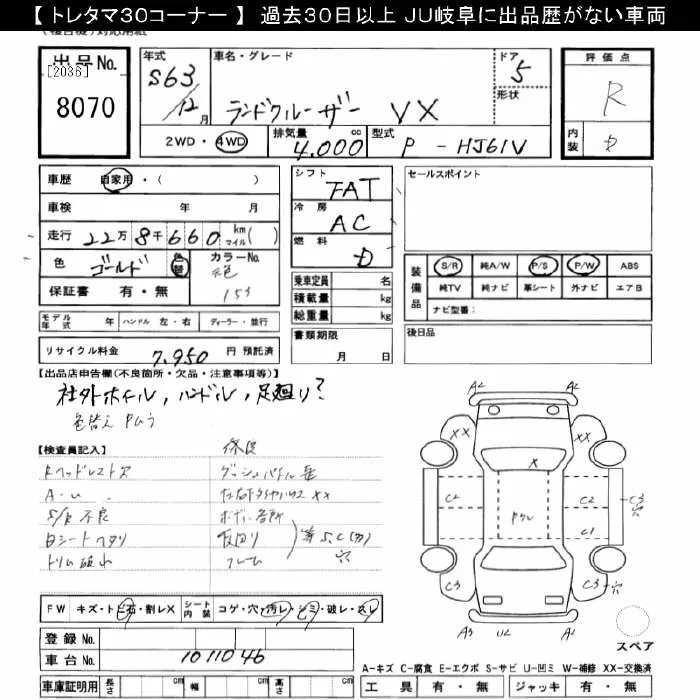 【 トレタマ30コーナー 】 過去30日以上 JU岐阜に出品歴がない車両
出品No.
[2036]
8070
年式 S63/12月
車名・グレード ランドクルーザー VX
ドア 5
形状
評価点 R
内装 D
2WD・4WD 排気量 4,000 cc 型式 P - HJ61V
車歴 自家用・( )
車検 年 月
走行 22万8千660 km マイル( )
色 ゴールド 色替 カラーNo.
保証書 有・無
シフト FAT
冷房 AC
燃料 D
乗車定員 名
積載量 kg
総重量 kg
書類期限 月 日
セールスポイント
装備品 S/R 純A/W P/S P/W ABS
純TV 純ナビ 革シート 外ナビ エアB
ナビ型番:
後日品
モデル年式 年 ハンドル 左・右 ディーラー・並行
リサイクル料金 7,950 円 預託済
【出品店申告欄(不良箇所・欠品・注意事項等)】
社外ホイル, ハンドル, 足廻り?
色替え Pムラ
【検査員記入】
Rヘッドレスト欠
S/R 不良
シートヘタリ
トリム破れ
下回り
フレーム
等 S,C(力)穴
A2 A2
XX XX
X
C2 C2 C3 穴
Pクレ
C1
C3 C3 穴
A3 U2 A2
スペア
FW キズ・トビ石・割レX シート内装 コゲ・穴・汚レ・シミ・破レ・スレ
登録No.
車台No. 1011046
A-キズ C-腐食 E-エクボ S-サビ U-凹ミ W-補修 XX-交換済
車庫証明用 長さ cm 幅 cm 高さ cm
工具 有・無 ジャッキ 有・無